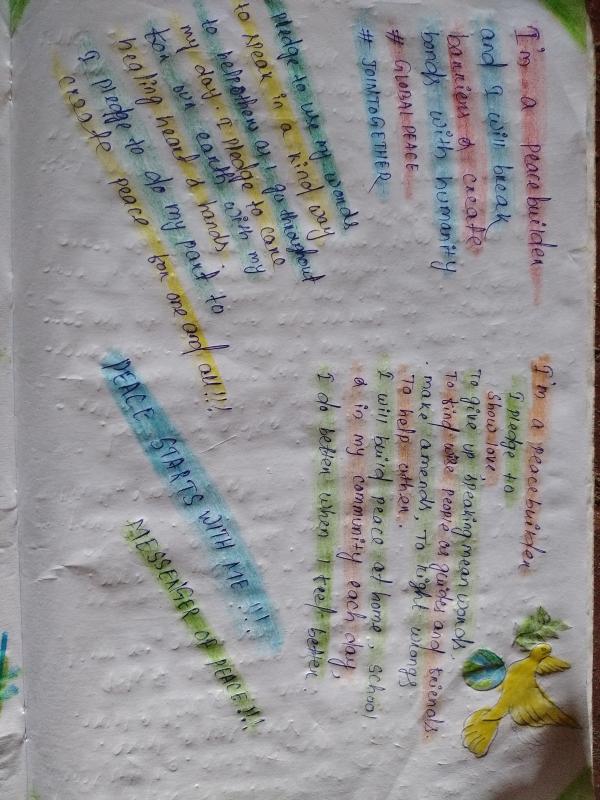 I'm a peacebuilder
and I will break
barriers & create
bonds with humanity
# GLOBAL PEACE
# JOINTOGETHER
pledge to use my words
to speak in a kind way
to help others as I go throughout
my day. I pledge to care
for our earth with my
healing heart & hands.
I pledge to do my part to
create peace for one and all!!!
I'm a peacebuilder
I pledge to
show love,
To give up speaking mean words,
To find wise people as guides and friends.
make amends, To right wrongs
To help others.
I will build peace at home, school
& in my community each day,
I do better when I feel better.
PEACE STARTS WITH ME!!!
MESSENGER OF PEACE!!!